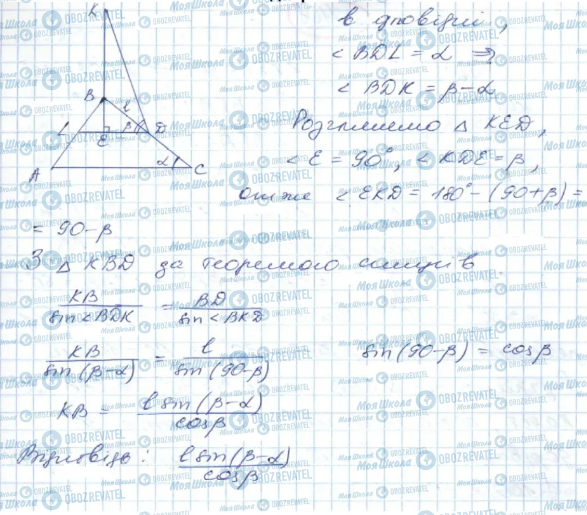 відповідні,
∠BDL = α ⇒
∠BDK = β-α
Розглянемо △ KED,
∠E = 90°, ∠KDE = β,
отже ∠EKD = 180° - (90+β) =
= 90-β
З △ KBD за теоремою синусів
KB / sin∠BDK = BD / sin∠BKD
KB / sin(β-α) = l / sin(90-β)
sin(90-β) = cosβ
KB = l sin(β-α) / cosβ
Відповідь: l sin(β-α) / cosβ
K
B
l
L
E
D
A
α
C
Моя Школа
OBOZREVATEL